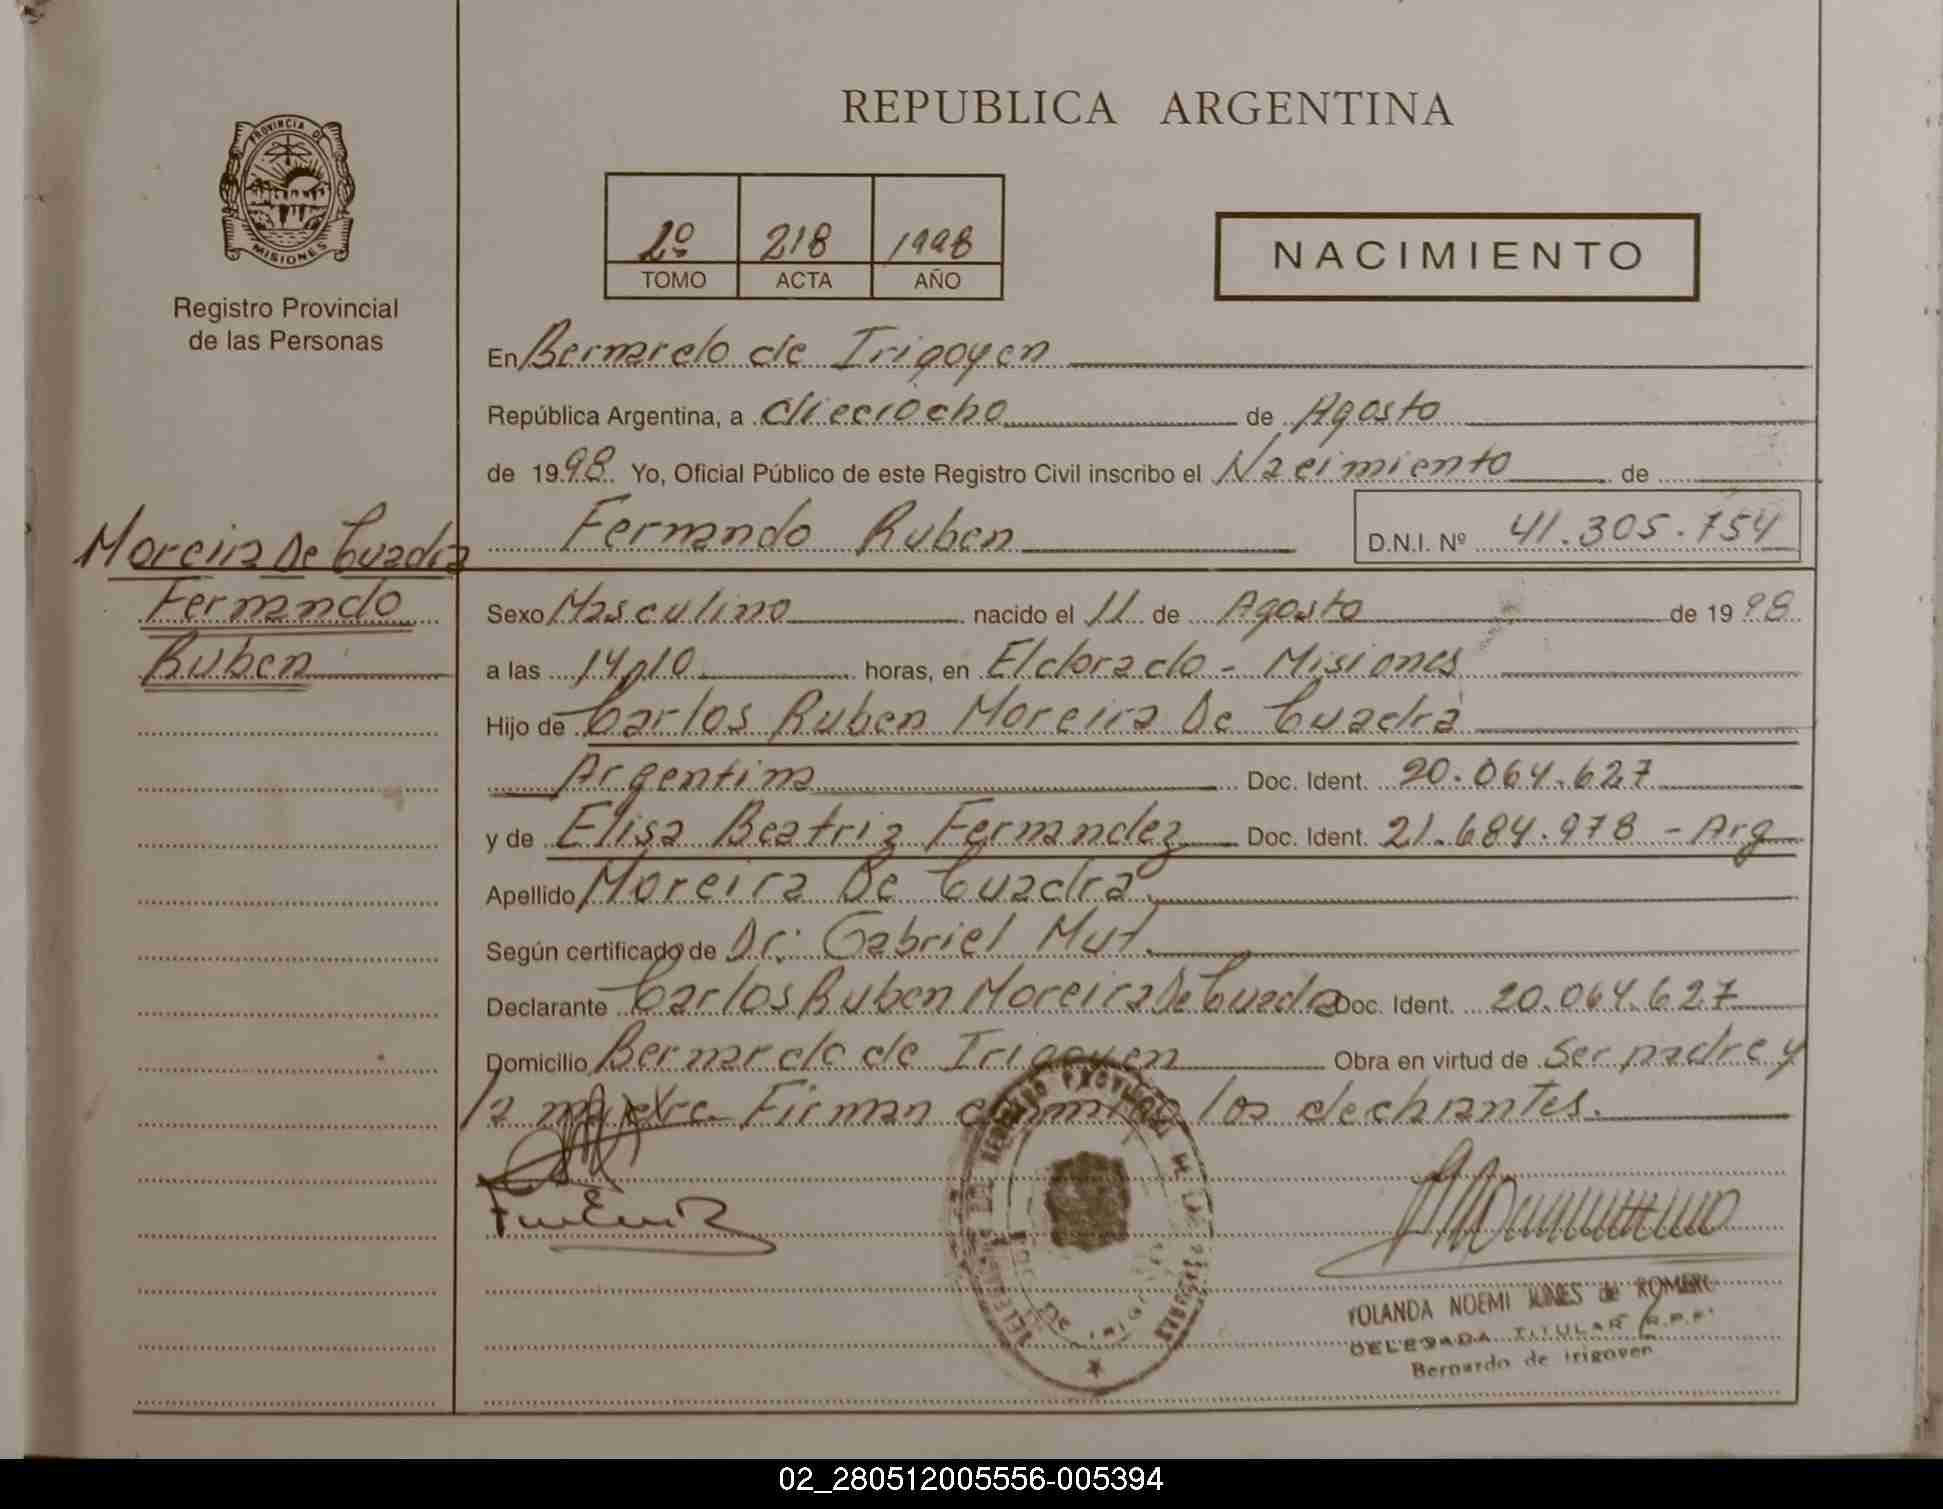 REPUBLICA ARGENTINA
PROVINCIA DE
MISIONES
Registro Provincial
de las Personas
2º 218 1998
TOMO ACTA AÑO
NACIMIENTO
En Bernardo de Irigoyen
República Argentina, a dieciocho de Agosto
de 1998. Yo, Oficial Público de este Registro Civil inscribo el Nacimiento de
Fernando Ruben D.N.I. Nº 41.305.754
Moreira De Cuadra
Fernando
Ruben
Sexo Masculino nacido el 11 de Agosto de 1998
a las 14,10 horas, en Eldorado - Misiones
Hijo de Carlos Ruben Moreira De Cuadra
Argentina Doc. Ident. 20.064.627
y de Elisa Beatriz Fernandez Doc. Ident. 21.684.978 - Arg
Apellido Moreira De Cuadra
Según certificado de Dr: Gabriel Mut.
Declarante Carlos Ruben Moreira De Cuadra Doc. Ident. 20.064.627
Domicilio Bernardo de Irigoyen Obra en virtud de Ser padre y
la madre Firman conmigo los declarantes.
YOLANDA NOEMI de ROMERO
DELEGADA TITULAR R.P.P.
Bernardo de Irigoyen
02_280512005556-005394